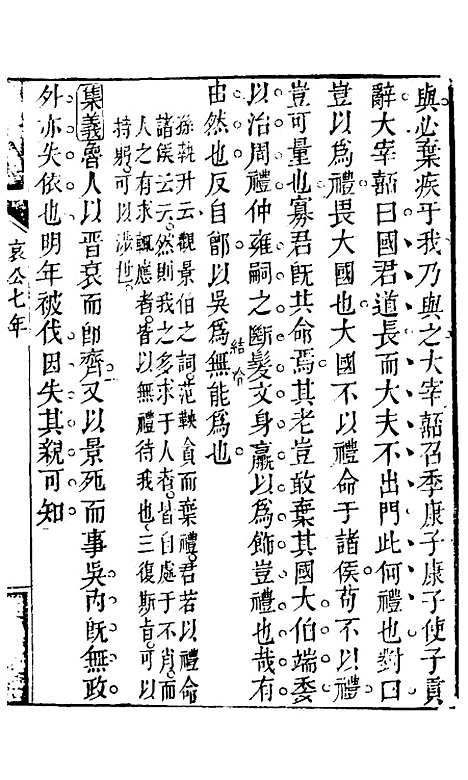 與必棄疾于我乃與之大宰嚭召季康子康子使子貢
辭大宰嚭曰國君道長而大夫不出門此何禮也對曰
豈以爲禮畏大國也大國不以禮命于諸侯苟不以禮
豈可量也寡君旣共命焉其老豈敢棄其國大伯端委
以治周禮仲雍嗣之斷髮文身羸以爲飾豈禮也哉有
由然也反自鄫以吳爲無能爲也
結冷
孫執升云觀景伯之詞范鞅貪而棄禮君若以禮命
諸侯云云然則我之多求于人者皆自處于不肖而
人之有求輒應者皆以無禮待我也三復斯旨可以
持躬可以涉世
集義魯人以晋衰而卽齊又以景死而事吳內旣無政
外亦失依也明年被伐因失其親可知
哀公七年